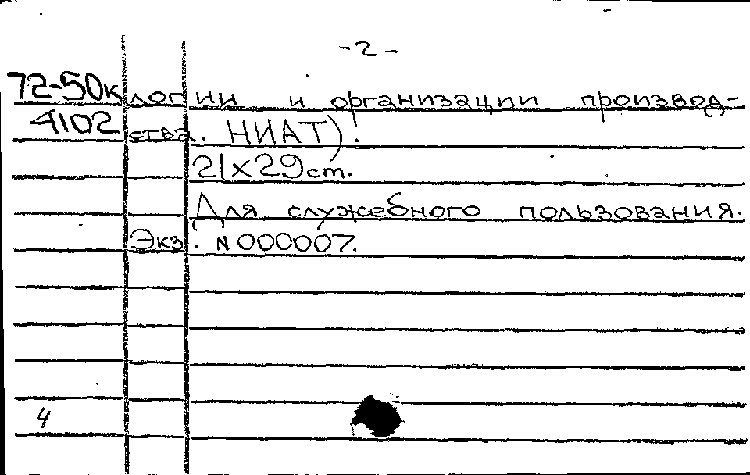 -2-
72-50к логии и организации производ-
4102 ства. НИАТ).
21x29 cm.
Для служебного пользования.
Экз. N 000007.
4